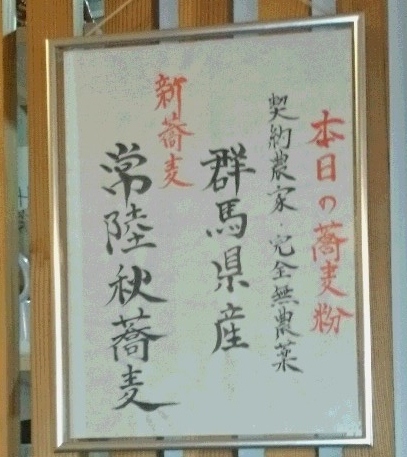 本日の蕎麦粉
契約農家・完全無農薬
群馬県産
新蕎麦
常陸秋蕎麦